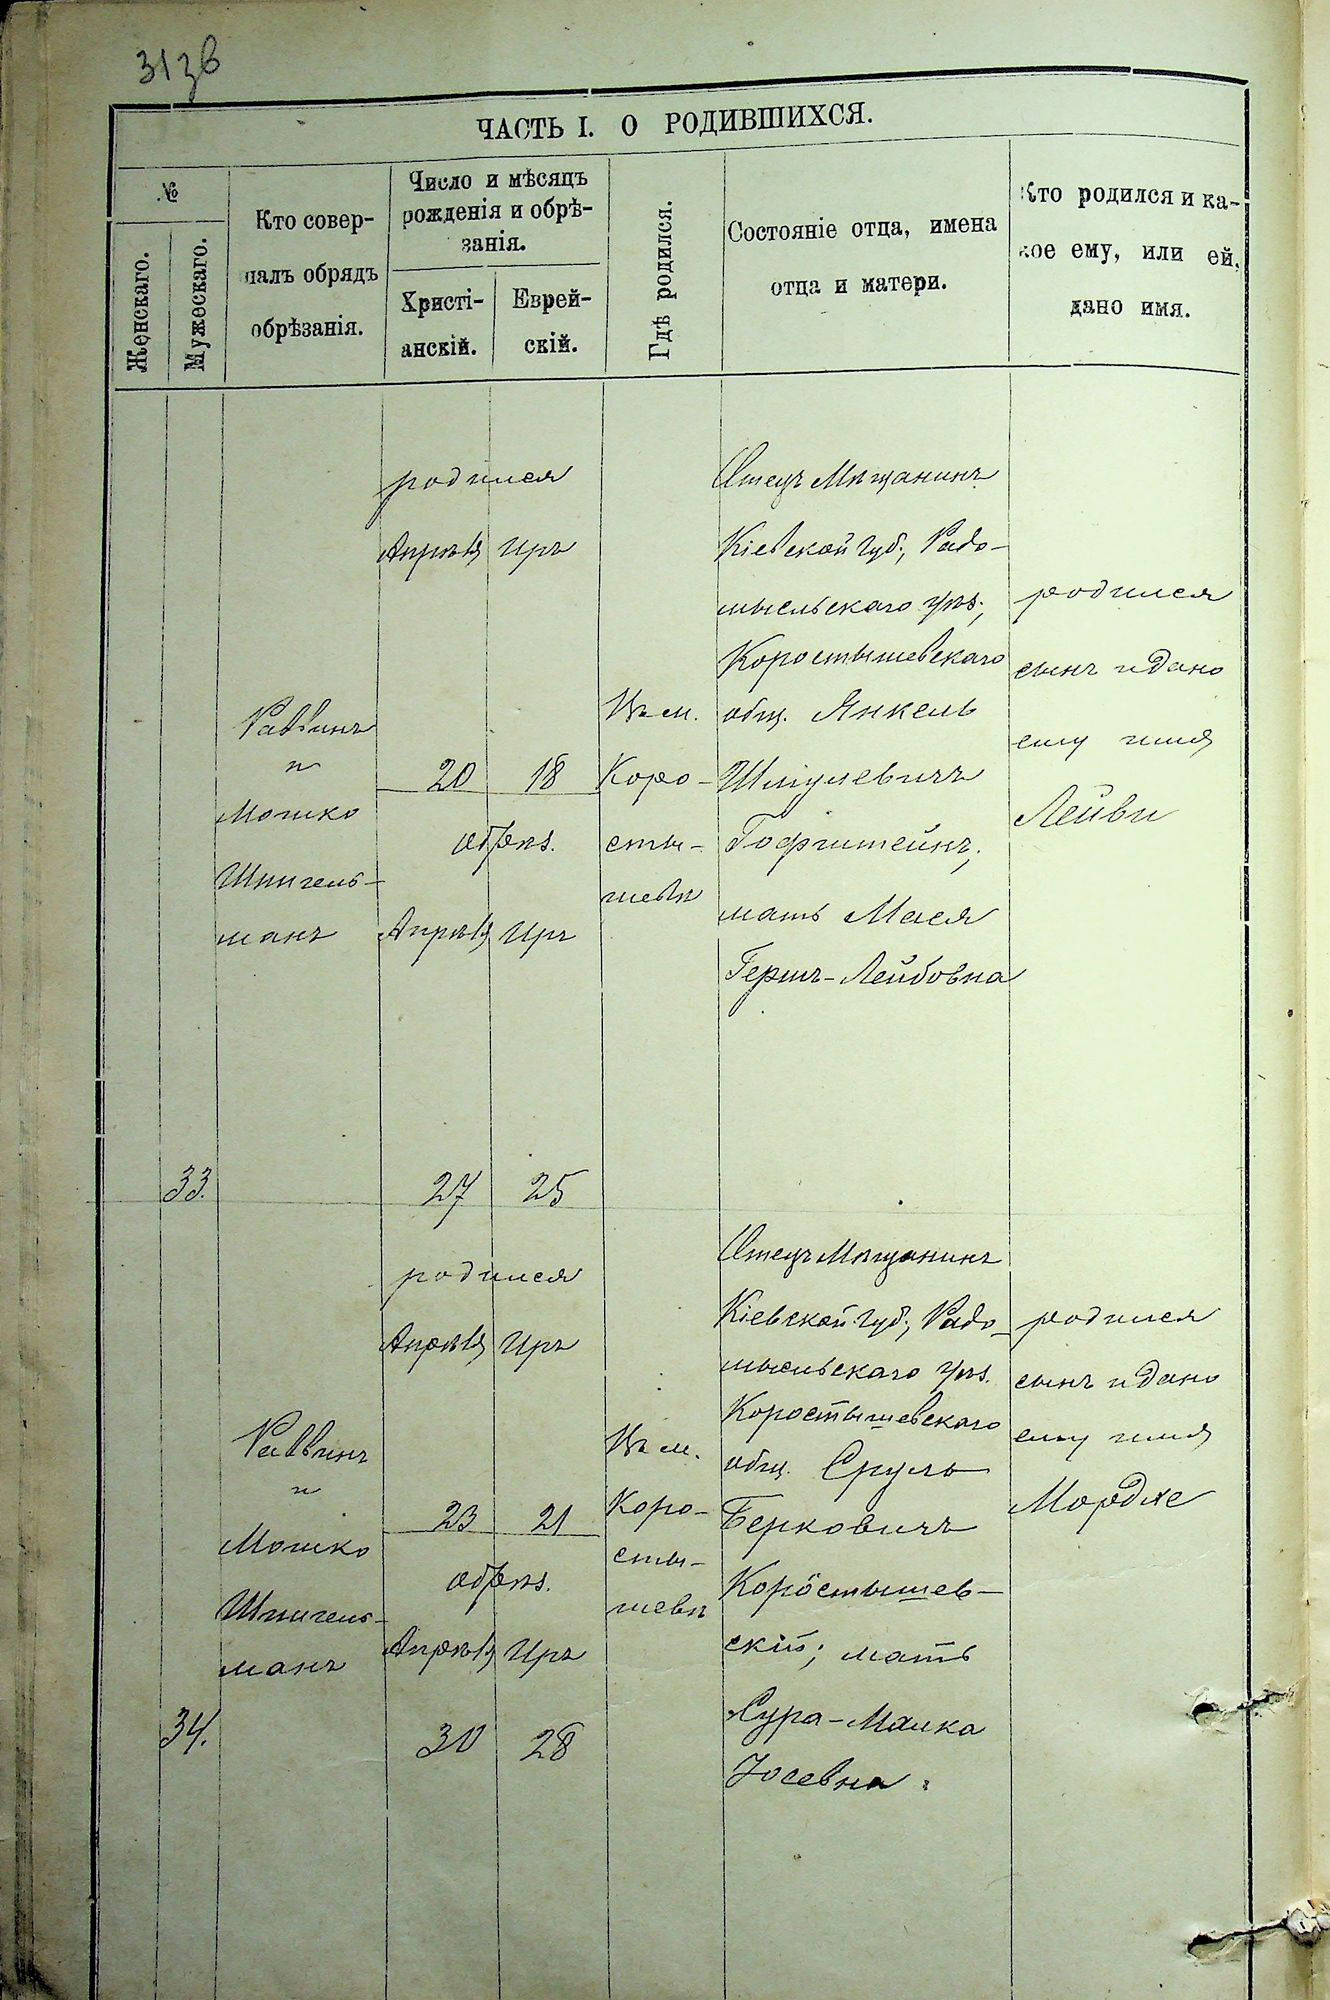 313в
ЧАСТЬ I. О РОДИВШИХСЯ.
№
Женскаго.
Мужескаго.
Кто совер-
шалъ обрядъ
обрѣзанія.
Число и мѣсяцъ
рожденія и обрѣ-
занія.
Христі-
анскій.
Еврей-
скій.
Гдѣ родился.
Состояніе отца, имена
отца и матери.
Кто родился и ка-
кое ему, или ей,
дано имя.
33.
Раввинъ
и
Мошко
Шпигель-
манъ
родился
Апрѣля Иръ
20 18
обрѣз.
Апрѣля Иръ
27 25
Въ м.
Коро-
сты-
шевѣ
Отецъ Мѣщанинъ
Кіевской губ., Радо-
мысльскаго уѣз.,
Коростышевскаго
общ. Янкель
Шмулевичъ
Гофштейнъ,
мать Мася
Гершъ-Лейбовна
родился
сынъ и дано
ему имя
Лейви
34.
Раввинъ
и
Мошко
Шпигель-
манъ
родился
Апрѣля Иръ
23 21
обрѣз.
Апрѣля Иръ
30 28
Въ м.
Коро-
сты-
шевѣ
Отецъ Мѣщанинъ
Кіевской губ., Радо-
мысльскаго уѣз.
Коростышевскаго
общ. Сруль
Берковичъ
Коростышев-
скій; мать
Сура-Малка
Іосевна.
родился
сынъ и дано
ему имя
Мордхе